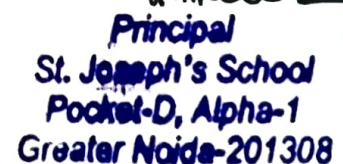 Principal
St. Joseph's School
Pocket-D, Alpha-1
Greater Noida-201308